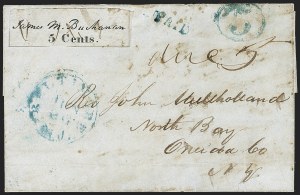 James M. Buchanan
5 Cents.
PAID
5
Rev John Mulholland
North Bay
Oneida Co
N.Y.